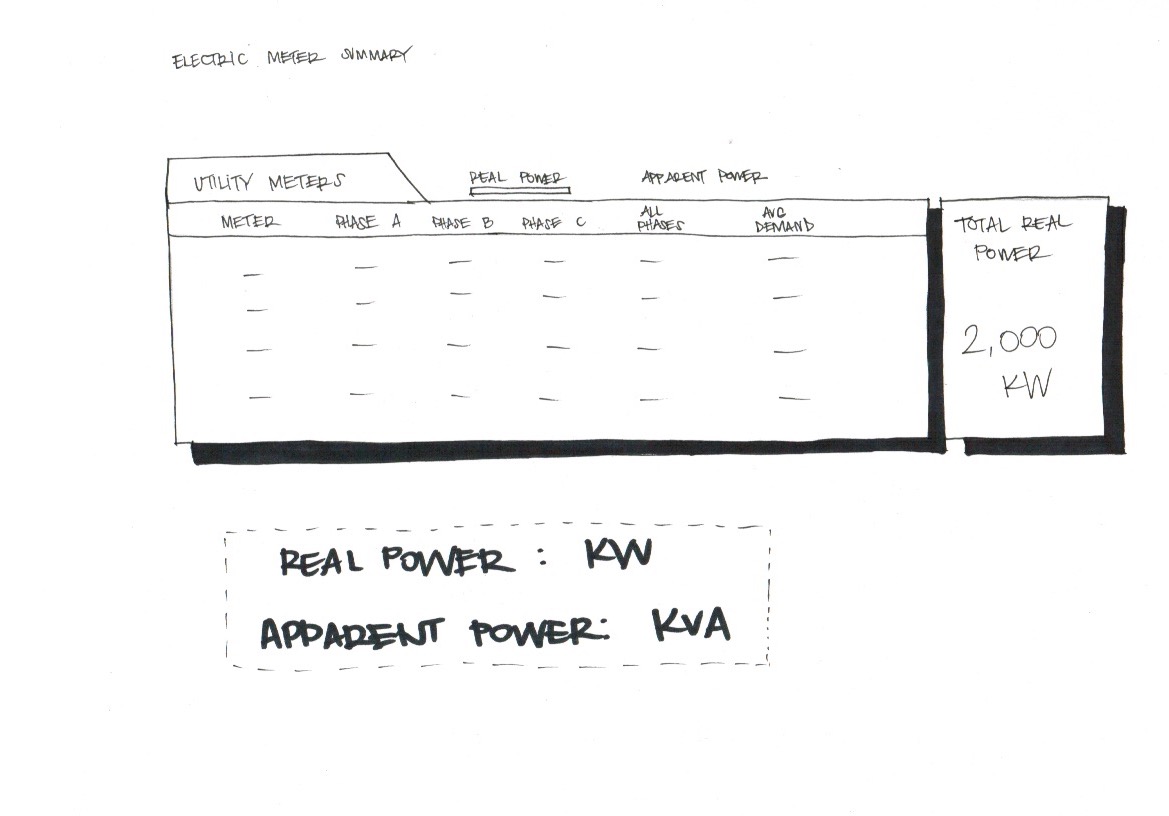 ELECTRIC METER SUMMARY
UTILITY METERS
REAL POWER
APPARENT POWER
METER
PHASE A
PHASE B
PHASE C
ALL
PHASES
AVG
DEMAND
TOTAL REAL
POWER
2,000
KW
REAL POWER : KW
APPARENT POWER: KVA